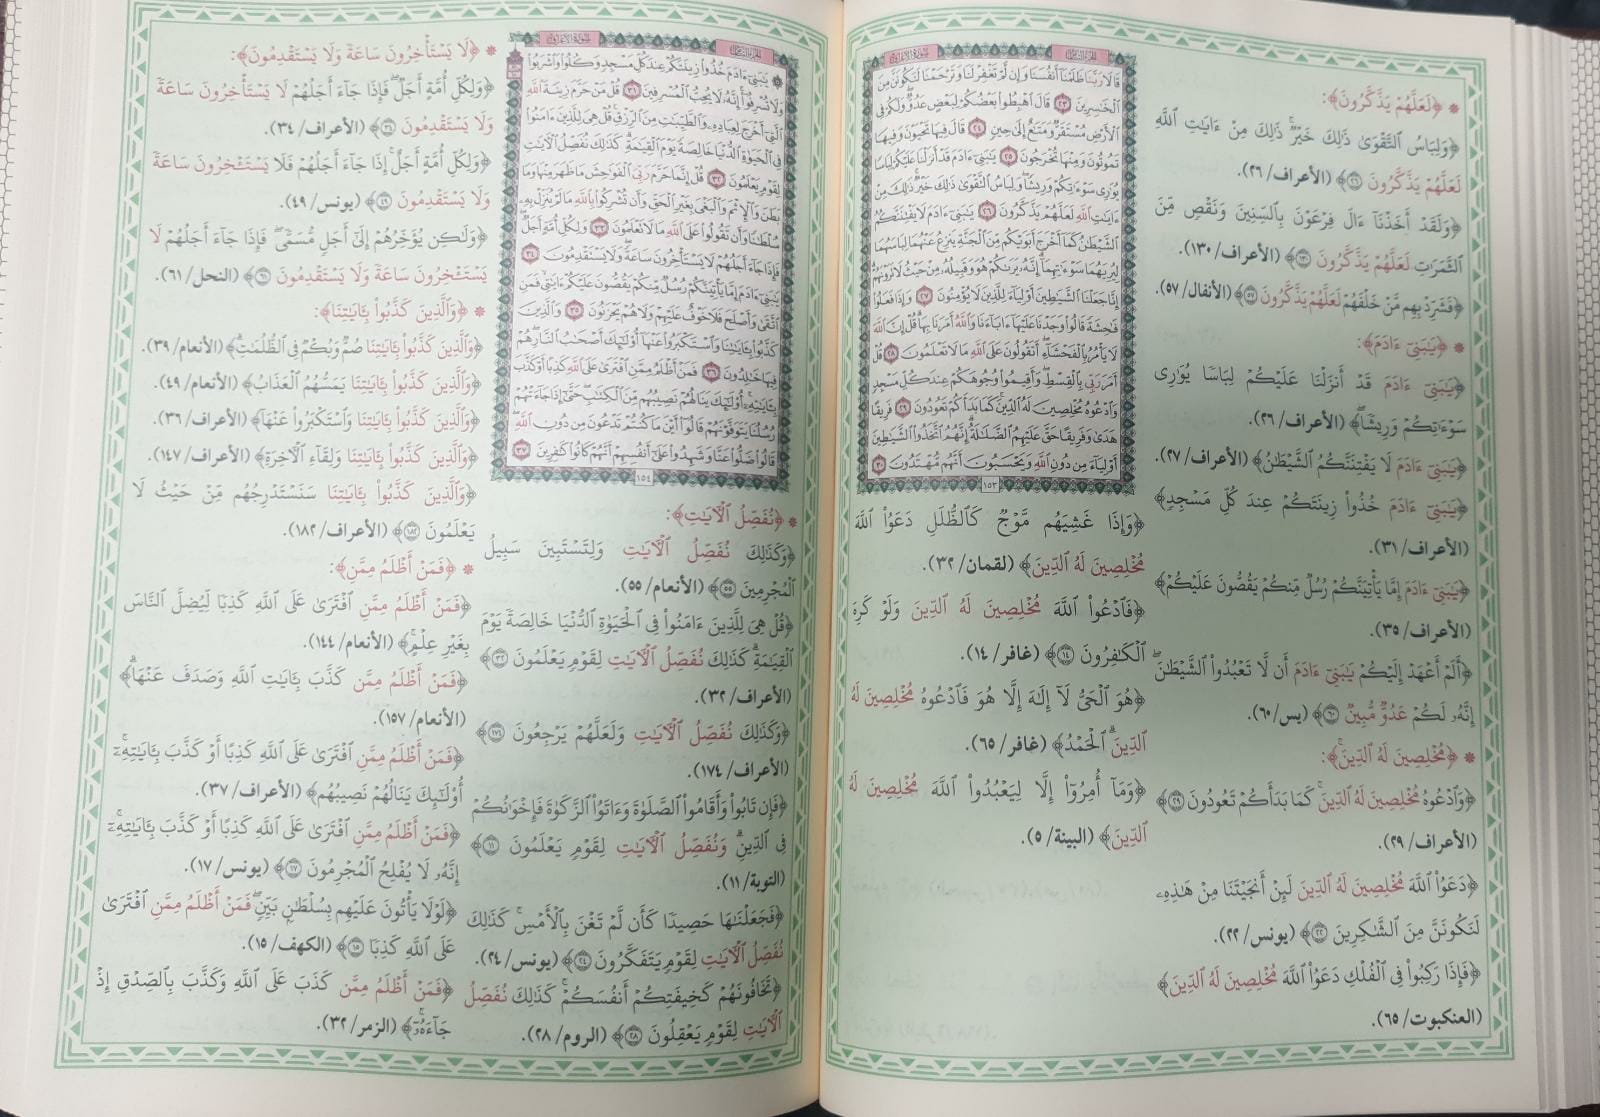 الجزء الثامن
سورة الأعراف
قَالَا رَبَّنَا ظَلَمْنَآ أَنفُسَنَا وَإِن لَّمْ تَغْفِرْ لَنَا وَتَرْحَمْنَا لَنَكُونَنَّ مِنَ
ٱلْخَٰسِرِينَ ٢٣ قَالَ ٱهْبِطُوا۟ بَعْضُكُمْ لِبَعْضٍ عَدُوٌّ وَلَكُمْ فِى
ٱلْأَرْضِ مُسْتَقَرٌّ وَمَتَٰعٌ إِلَىٰ حِينٍ ٢٤ قَالَ فِيهَا تَحْيَوْنَ وَفِيهَا
تَمُوتُونَ وَمِنْهَا تُخْرَجُونَ ٢٥ يَٰبَنِىٓ ءَادَمَ قَدْ أَنزَلْنَا عَلَيْكُمْ لِبَاسًا
يُوَٰرِى سَوْءَٰتِكُمْ وَرِيشًا وَلِبَاسُ ٱلتَّقْوَىٰ ذَٰلِكَ خَيْرٌ ذَٰلِكَ مِنْ
ءَايَٰتِ ٱللَّهِ لَعَلَّهُمْ يَذَّكَّرُونَ ٢٦ يَٰبَنِىٓ ءَادَمَ لَا يَفْتِنَنَّكُمُ
ٱلشَّيْطَٰنُ كَمَآ أَخْرَجَ أَبَوَيْكُم مِّنَ ٱلْجَنَّةِ يَنزِعُ عَنْهُمَا لِبَاسَهُمَا
لِيُرِيَهُمَا سَوْءَٰتِهِمَآ إِنَّهُۥ يَرَىٰكُمْ هُوَ وَقَبِيلُهُۥ مِنْ حَيْثُ لَا تَرَوْنَهُمْ
إِنَّا جَعَلْنَا ٱلشَّيَٰطِينَ أَوْلِيَآءَ لِلَّذِينَ لَا يُؤْمِنُونَ ٢٧ وَإِذَا فَعَلُوا۟
فَٰحِشَةً قَالُوا۟ وَجَدْنَا عَلَيْهَآ ءَابَآءَنَا وَٱللَّهُ أَمَرَنَا بِهَا قُلْ إِنَّ ٱللَّهَ
لَا يَأْمُرُ بِٱلْفَحْشَآءِ أَتَقُولُونَ عَلَى ٱللَّهِ مَا لَا تَعْلَمُونَ ٢٨ قُلْ
أَمَرَ رَبِّى بِٱلْقِسْطِ وَأَقِيمُوا۟ وُجُوهَكُمْ عِندَ كُلِّ مَسْجِدٍ
وَٱدْعُوهُ مُخْلِصِينَ لَهُ ٱلدِّينَ كَمَا بَدَأَكُمْ تَعُودُونَ ٢٩ فَرِيقًا
هَدَىٰ وَفَرِيقًا حَقَّ عَلَيْهِمُ ٱلضَّلَٰلَةُ إِنَّهُمُ ٱتَّخَذُوا۟ ٱلشَّيَٰطِينَ
أَوْلِيَآءَ مِن دُونِ ٱللَّهِ وَيَحْسَبُونَ أَنَّهُم مُّهْتَدُونَ ٣٠
١٥٣
* ﴿لَعَلَّهُمْ يَذَّكَّرُونَ﴾:
﴿وَلِبَاسُ ٱلتَّقْوَىٰ ذَٰلِكَ خَيْرٌ ذَٰلِكَ مِنْ ءَايَٰتِ ٱللَّهِ
لَعَلَّهُمْ يَذَّكَّرُونَ ٢٦﴾ (الأعراف/ ٢٦).
﴿وَلَقَدْ أَخَذْنَآ ءَالَ فِرْعَوْنَ بِٱلسِّنِينَ وَنَقْصٍ مِّنَ
ٱلثَّمَرَٰتِ لَعَلَّهُمْ يَذَّكَّرُونَ ١٣٠﴾ (الأعراف/ ١٣٠).
﴿فَشَرِّدْ بِهِم مَّنْ خَلْفَهُمْ لَعَلَّهُمْ يَذَّكَّرُونَ ٥٧﴾ (الأنفال/ ٥٧).
* ﴿يَٰبَنِىٓ ءَادَمَ﴾:
﴿يَٰبَنِىٓ ءَادَمَ قَدْ أَنزَلْنَا عَلَيْكُمْ لِبَاسًا يُوَٰرِى
سَوْءَٰتِكُمْ وَرِيشًا﴾ (الأعراف/ ٢٦).
﴿يَٰبَنِىٓ ءَادَمَ لَا يَفْتِنَنَّكُمُ ٱلشَّيْطَٰنُ﴾ (الأعراف/ ٢٧).
﴿يَٰبَنِىٓ ءَادَمَ خُذُوا۟ زِينَتَكُمْ عِندَ كُلِّ مَسْجِدٍ﴾
(الأعراف/ ٣١).
﴿يَٰبَنِىٓ ءَادَمَ إِمَّا يَأْتِيَنَّكُمْ رُسُلٌ مِّنكُمْ يَقُصُّونَ عَلَيْكُمْ﴾
(الأعراف/ ٣٥).
﴿أَلَمْ أَعْهَدْ إِلَيْكُمْ يَٰبَنِىٓ ءَادَمَ أَن لَّا تَعْبُدُوا۟ ٱلشَّيْطَٰنَ
إِنَّهُۥ لَكُمْ عَدُوٌّ مُّبِينٌ ٦٠﴾ (يس/ ٦٠).
* ﴿مُخْلِصِينَ لَهُ ٱلدِّينَ﴾:
﴿وَٱدْعُوهُ مُخْلِصِينَ لَهُ ٱلدِّينَ كَمَا بَدَأَكُمْ تَعُودُونَ ٢٩﴾
(الأعراف/ ٢٩).
﴿دَعَوُا۟ ٱللَّهَ مُخْلِصِينَ لَهُ ٱلدِّينَ لَئِنْ أَنجَيْتَنَا مِنْ هَٰذِهِۦ
لَنَكُونَنَّ مِنَ ٱلشَّٰكِرِينَ ٢٢﴾ (يونس/ ٢٢).
﴿فَإِذَا رَكِبُوا۟ فِى ٱلْفُلْكِ دَعَوُا۟ ٱللَّهَ مُخْلِصِينَ لَهُ ٱلدِّينَ﴾
(العنكبوت/ ٦٥).
﴿وَإِذَا غَشِيَهُم مَّوْجٌ كَٱلظُّلَلِ دَعَوُا۟ ٱللَّهَ
مُخْلِصِينَ لَهُ ٱلدِّينَ﴾ (لقمان/ ٣٢).
﴿فَٱدْعُوا۟ ٱللَّهَ مُخْلِصِينَ لَهُ ٱلدِّينَ وَلَوْ كَرِهَ
ٱلْكَٰفِرُونَ ١٤﴾ (غافر/ ١٤).
﴿هُوَ ٱلْحَىُّ لَآ إِلَٰهَ إِلَّا هُوَ فَٱدْعُوهُ مُخْلِصِينَ لَهُ
ٱلدِّينَ ٱلْحَمْدُ﴾ (غافر/ ٦٥).
﴿وَمَآ أُمِرُوٓا۟ إِلَّا لِيَعْبُدُوا۟ ٱللَّهَ مُخْلِصِينَ لَهُ
ٱلدِّينَ﴾ (البينة/ ٥).
الجزء الثامن
سورة الأعراف
يَٰبَنِىٓ ءَادَمَ خُذُوا۟ زِينَتَكُمْ عِندَ كُلِّ مَسْجِدٍ وَكُلُوا۟ وَٱشْرَبُوا۟
وَلَا تُسْرِفُوٓا۟ إِنَّهُۥ لَا يُحِبُّ ٱلْمُسْرِفِينَ ٣١ قُلْ مَنْ حَرَّمَ زِينَةَ ٱللَّهِ
ٱلَّتِىٓ أَخْرَجَ لِعِبَادِهِۦ وَٱلطَّيِّبَٰتِ مِنَ ٱلرِّزْقِ قُلْ هِىَ لِلَّذِينَ ءَامَنُوا۟
فِى ٱلْحَيَوٰةِ ٱلدُّنْيَا خَالِصَةً يَوْمَ ٱلْقِيَٰمَةِ كَذَٰلِكَ نُفَصِّلُ ٱلْءَايَٰتِ
لِقَوْمٍ يَعْلَمُونَ ٣٢ قُلْ إِنَّمَا حَرَّمَ رَبِّىَ ٱلْفَوَٰحِشَ مَا ظَهَرَ مِنْهَا وَمَا
بَطَنَ وَٱلْإِثْمَ وَٱلْبَغْىَ بِغَيْرِ ٱلْحَقِّ وَأَن تُشْرِكُوا۟ بِٱللَّهِ مَا لَمْ يُنَزِّلْ بِهِۦ
سُلْطَٰنًا وَأَن تَقُولُوا۟ عَلَى ٱللَّهِ مَا لَا تَعْلَمُونَ ٣٣ وَلِكُلِّ أُمَّةٍ أَجَلٌ
فَإِذَا جَآءَ أَجَلُهُمْ لَا يَسْتَأْخِرُونَ سَاعَةً وَلَا يَسْتَقْدِمُونَ ٣٤
يَٰبَنِىٓ ءَادَمَ إِمَّا يَأْتِيَنَّكُمْ رُسُلٌ مِّنكُمْ يَقُصُّونَ عَلَيْكُمْ ءَايَٰتِى فَمَنِ
ٱتَّقَىٰ وَأَصْلَحَ فَلَا خَوْفٌ عَلَيْهِمْ وَلَا هُمْ يَحْزَنُونَ ٣٥ وَٱلَّذِينَ
كَذَّبُوا۟ بِـَٔايَٰتِنَا وَٱسْتَكْبَرُوا۟ عَنْهَآ أُو۟لَٰٓئِكَ أَصْحَٰبُ ٱلنَّارِ هُمْ
فِيهَا خَٰلِدُونَ ٣٦ فَمَنْ أَظْلَمُ مِمَّنِ ٱفْتَرَىٰ عَلَى ٱللَّهِ كَذِبًا أَوْ كَذَّبَ
بِـَٔايَٰتِهِۦٓ أُو۟لَٰٓئِكَ يَنَالُهُمْ نَصِيبُهُم مِّنَ ٱلْكِتَٰبِ حَتَّىٰٓ إِذَا جَآءَتْهُمْ
رُسُلُنَا يَتَوَفَّوْنَهُمْ قَالُوٓا۟ أَيْنَ مَا كُنتُمْ تَدْعُونَ مِن دُونِ ٱللَّهِ
قَالُوا۟ ضَلُّوا۟ عَنَّا وَشَهِدُوا۟ عَلَىٰٓ أَنفُسِهِمْ أَنَّهُمْ كَانُوا۟ كَٰفِرِينَ ٣٧
١٥٤
* ﴿نُفَصِّلُ ٱلْءَايَٰتِ﴾:
﴿وَكَذَٰلِكَ نُفَصِّلُ ٱلْءَايَٰتِ وَلِتَسْتَبِينَ سَبِيلُ
ٱلْمُجْرِمِينَ ٥٥﴾ (الأنعام/ ٥٥).
﴿قُلْ هِىَ لِلَّذِينَ ءَامَنُوا۟ فِى ٱلْحَيَوٰةِ ٱلدُّنْيَا خَالِصَةً يَوْمَ
ٱلْقِيَٰمَةِ كَذَٰلِكَ نُفَصِّلُ ٱلْءَايَٰتِ لِقَوْمٍ يَعْلَمُونَ ٣٢﴾
(الأعراف/ ٣٢).
﴿وَكَذَٰلِكَ نُفَصِّلُ ٱلْءَايَٰتِ وَلَعَلَّهُمْ يَرْجِعُونَ ١٧٤﴾
(الأعراف/ ١٧٤).
﴿فَإِن تَابُوا۟ وَأَقَامُوا۟ ٱلصَّلَوٰةَ وَءَاتَوُا۟ ٱلزَّكَوٰةَ فَإِخْوَٰنُكُمْ
فِى ٱلدِّينِ وَنُفَصِّلُ ٱلْءَايَٰتِ لِقَوْمٍ يَعْلَمُونَ ١١﴾
(التوبة/ ١١).
﴿فَجَعَلْنَٰهَا حَصِيدًا كَأَن لَّمْ تَغْنَ بِٱلْأَمْسِ كَذَٰلِكَ
نُفَصِّلُ ٱلْءَايَٰتِ لِقَوْمٍ يَتَفَكَّرُونَ ٢٤﴾ (يونس/ ٢٤).
﴿تَخَافُونَهُمْ كَخِيفَتِكُمْ أَنفُسَكُمْ كَذَٰلِكَ نُفَصِّلُ
ٱلْءَايَٰتِ لِقَوْمٍ يَعْقِلُونَ ٢٨﴾ (الروم/ ٢٨).
* ﴿لَا يَسْتَأْخِرُونَ سَاعَةً وَلَا يَسْتَقْدِمُونَ﴾:
﴿وَلِكُلِّ أُمَّةٍ أَجَلٌ فَإِذَا جَآءَ أَجَلُهُمْ لَا يَسْتَأْخِرُونَ سَاعَةً
وَلَا يَسْتَقْدِمُونَ ٣٤﴾ (الأعراف/ ٣٤).
﴿وَلِكُلِّ أُمَّةٍ أَجَلٌ إِذَا جَآءَ أَجَلُهُمْ فَلَا يَسْتَـْٔخِرُونَ سَاعَةً
وَلَا يَسْتَقْدِمُونَ ٤٩﴾ (يونس/ ٤٩).
﴿وَلَٰكِن يُؤَخِّرُهُمْ إِلَىٰٓ أَجَلٍ مُّسَمًّى فَإِذَا جَآءَ أَجَلُهُمْ لَا
يَسْتَـْٔخِرُونَ سَاعَةً وَلَا يَسْتَقْدِمُونَ ٦١﴾ (النحل/ ٦١).
* ﴿وَٱلَّذِينَ كَذَّبُوا۟ بِـَٔايَٰتِنَا﴾:
﴿وَٱلَّذِينَ كَذَّبُوا۟ بِـَٔايَٰتِنَا صُمٌّ وَبُكْمٌ فِى ٱلظُّلُمَٰتِ﴾ (الأنعام/ ٣٩).
﴿وَٱلَّذِينَ كَذَّبُوا۟ بِـَٔايَٰتِنَا يَمَسُّهُمُ ٱلْعَذَابُ﴾ (الأنعام/ ٤٩).
﴿وَٱلَّذِينَ كَذَّبُوا۟ بِـَٔايَٰتِنَا وَٱسْتَكْبَرُوا۟ عَنْهَآ﴾ (الأعراف/ ٣٦).
﴿وَٱلَّذِينَ كَذَّبُوا۟ بِـَٔايَٰتِنَا وَلِقَآءِ ٱلْءَاخِرَةِ﴾ (الأعراف/ ١٤٧).
﴿وَٱلَّذِينَ كَذَّبُوا۟ بِـَٔايَٰتِنَا سَنَسْتَدْرِجُهُم مِّنْ حَيْثُ لَا
يَعْلَمُونَ ١٨٢﴾ (الأعراف/ ١٨٢).
* ﴿فَمَنْ أَظْلَمُ مِمَّنِ﴾:
﴿فَمَنْ أَظْلَمُ مِمَّنِ ٱفْتَرَىٰ عَلَى ٱللَّهِ كَذِبًا لِّيُضِلَّ ٱلنَّاسَ
بِغَيْرِ عِلْمٍ﴾ (الأنعام/ ١٤٤).
﴿فَمَنْ أَظْلَمُ مِمَّن كَذَّبَ بِـَٔايَٰتِ ٱللَّهِ وَصَدَفَ عَنْهَا﴾
(الأنعام/ ١٥٧).
﴿فَمَنْ أَظْلَمُ مِمَّنِ ٱفْتَرَىٰ عَلَى ٱللَّهِ كَذِبًا أَوْ كَذَّبَ بِـَٔايَٰتِهِۦٓ
أُو۟لَٰٓئِكَ يَنَالُهُمْ نَصِيبُهُم﴾ (الأعراف/ ٣٧).
﴿فَمَنْ أَظْلَمُ مِمَّنِ ٱفْتَرَىٰ عَلَى ٱللَّهِ كَذِبًا أَوْ كَذَّبَ بِـَٔايَٰتِهِۦٓ
إِنَّهُۥ لَا يُفْلِحُ ٱلْمُجْرِمُونَ ١٧﴾ (يونس/ ١٧).
﴿لَّوْلَا يَأْتُونَ عَلَيْهِم بِسُلْطَٰنٍ بَيِّنٍ فَمَنْ أَظْلَمُ مِمَّنِ ٱفْتَرَىٰ
عَلَى ٱللَّهِ كَذِبًا ١٥﴾ (الكهف/ ١٥).
﴿فَمَنْ أَظْلَمُ مِمَّن كَذَبَ عَلَى ٱللَّهِ وَكَذَّبَ بِٱلصِّدْقِ إِذْ
جَآءَهُۥٓ﴾ (الزمر/ ٣٢).